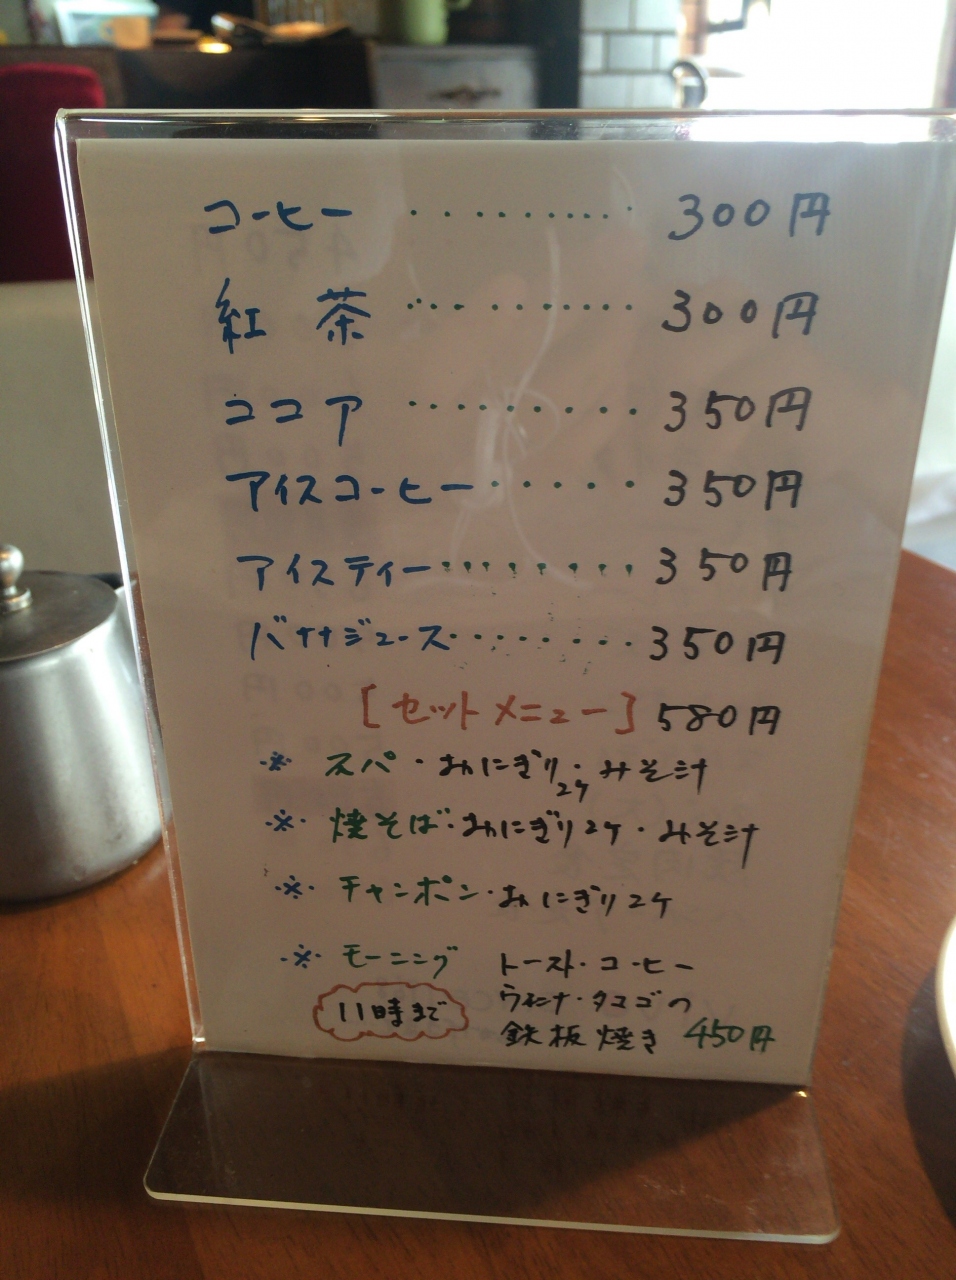 コーヒー ・・・・・・・・・ 300円
紅茶 ・・・・・・・・・ 300円
ココア ・・・・・・・・・ 350円
アイスコーヒー ・・・・・・ 350円
アイスティー ・・・・・・・・ 350円
バナナジュース ・・・・・・・・ 350円
[セットメニュー] 580円
※ スパ・おにぎり2ケ・みそ汁
※ 焼そば・おにぎり2ケ・みそ汁
※ チャンポン・おにぎり2ケ
※ モーニング トースト・コーヒー
11時まで ウインナ・タマゴの
鉄板焼き 450円